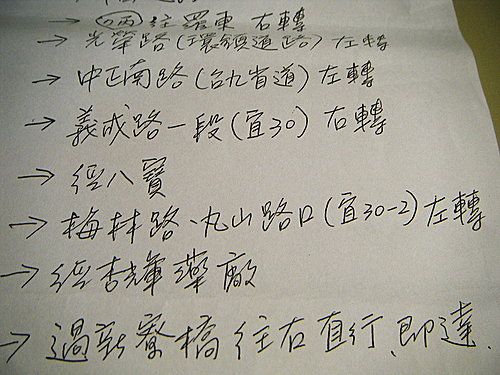 → 往羅東 右轉
→ 光榮路(環鎮道路)左轉
→ 中正南路(台九省道)左轉
→ 義成路一段(宜30) 右轉
→ 經八寶
→ 梅林路、丸山路口(宜30-2)左轉
→ 經杏輝藥廠
→ 過新寮橋往右直行、即達.